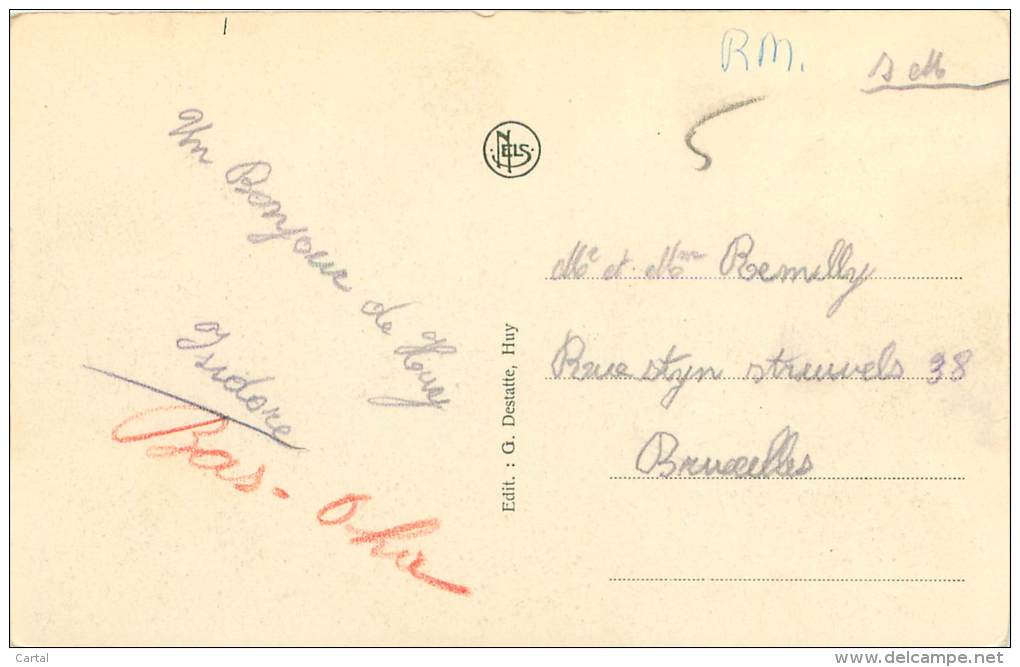 RM.
S M
5
NELS
Un Bonjour de Huy
Isidore
Bas-Oha
Edit. : G. Destatte, Huy
Mr et Mme Remilly
Rue styn streuvels 38
Bruxelles
Cartal
www.delcampe.net